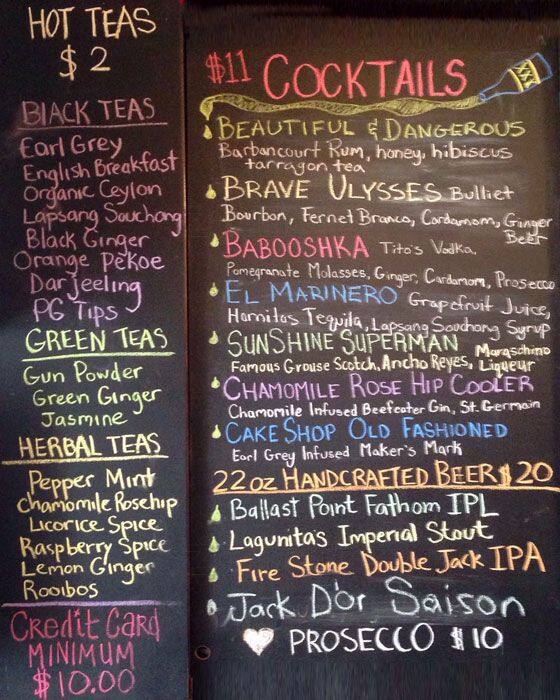 HOT TEAS
$2
BLACK TEAS
Earl Grey
English Breakfast
Organic Ceylon
Lapsang Souchong
Black Ginger
Orange Pekoe
Darjeeling
PG Tips
GREEN TEAS
Gun Powder
Green Ginger
Jasmine
HERBAL TEAS
Pepper Mint
Chamomile Rosehip
Licorice Spice
Raspberry Spice
Lemon Ginger
Rooibos
Credit Card
MINIMUM
$10.00
$11 COCKTAILS
BEAUTIFUL & DANGEROUS
Barbancourt Rum, honey, hibiscus
tarragon tea
BRAVE ULYSSES Bulliet
Bourbon, Fernet Branca, Cardamom, Ginger
Beer
BABOOSHKA Tito's Vodka,
Pomegranate Molasses, Ginger, Cardamom, Prosecco
EL MARINERO Grapefruit Juice,
Hornitos Tequila, Lapsang Souchong Syrup
SUNSHINE SUPERMAN Maraschino
Famous Grouse Scotch, Ancho Reyes, Liqueur
CHAMOMILE ROSE HIP COOLER
Chamomile Infused Beefeater Gin, St. Germain
CAKE SHOP OLD FASHIONED
Earl Grey Infused Maker's Mark
22oz HANDCRAFTED BEER $20
Ballast Point Fathom IPL
Lagunitas Imperial Stout
Fire Stone Double Jack IPA
Jack D'or Saison
PROSECCO $10